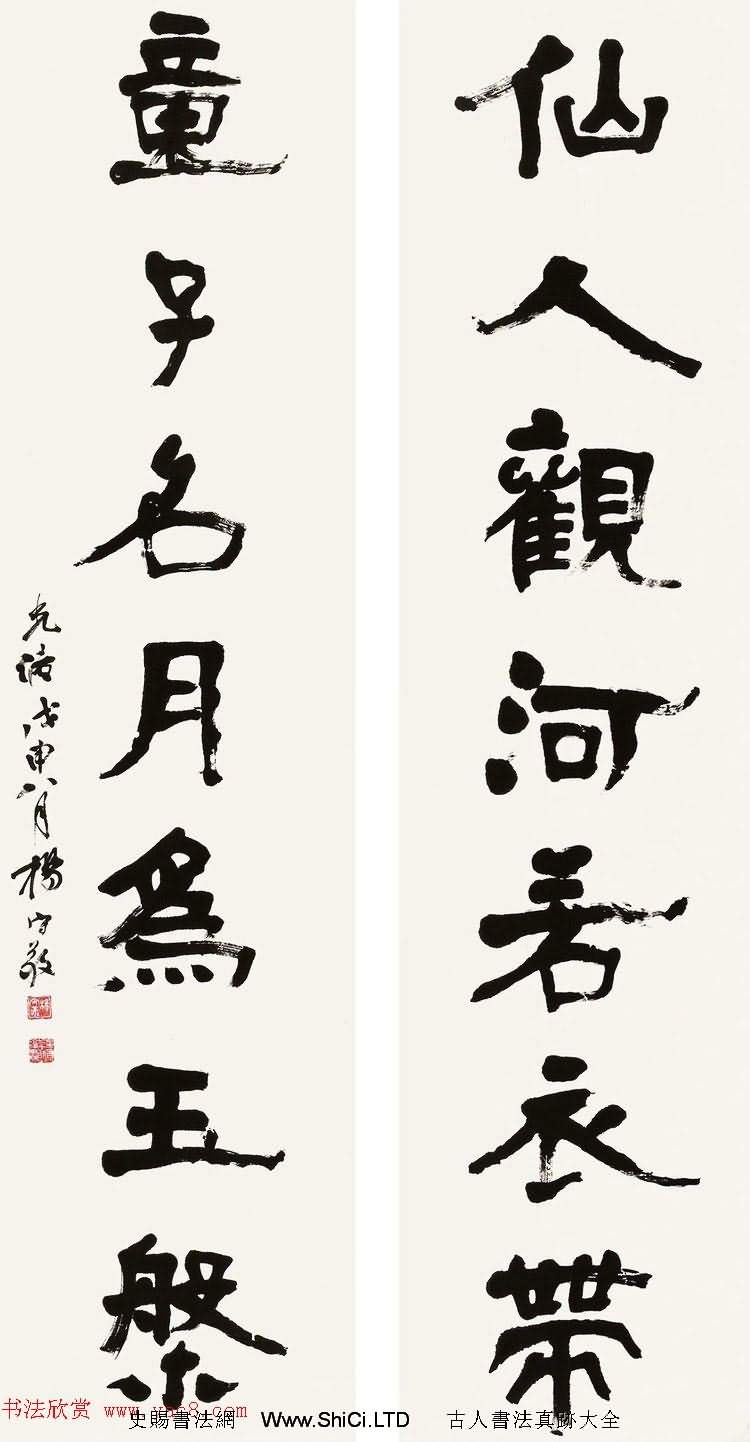 仙人觀河若衣帶
童子名月爲玉槃
光緒戊申八月楊守敬
书法欣赏 www.yac8.com
史賜書法網 Www.ShiCi.LTD 古人書法真跡大全